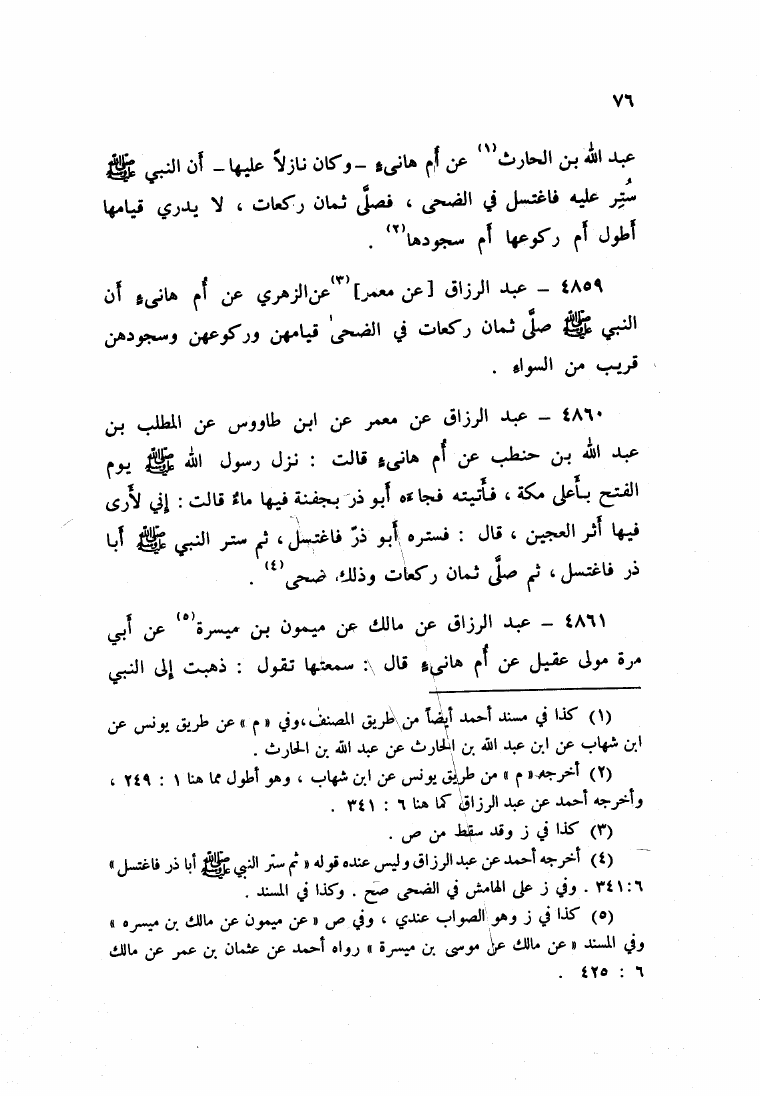 ٧٦
عبد الله بن الحارث(١) عن أم هانىء –وكان نازلاً عليها– أن النبي ﷺ
سُتِر عليه فاغتسل في الضحى ، فصلَّى ثمان ركعات ، لا يدري قيامها
أطول أم ركوعها أم سجودها(٢) .
٤٨٥٩ – عبد الرزاق [عن معمر](٣) عن الزهري عن أم هانىء أن
النبي ﷺ صلَّى ثمان ركعات في الضحى قيامهن وركوعهن وسجودهن
قريب من السواء .
٤٨٦٠ – عبد الرزاق عن معمر عن ابن طاووس عن المطلب بن
عبد الله بن حنطب عن أم هانىء قالت : نزل رسول الله ﷺ يوم
الفتح بأعلى مكة ، فأتيته فجاءه أبو ذر بجفنة فيها ماءٌ قالت : إني لأرى
فيها أثر العجين ، قال : فستره أبو ذرّ فاغتسل ، ثم ستر النبي ﷺ أبا
ذر فاغتسل ، ثم صلَّى ثمان ركعات وذلك ضحى(٤) .
٤٨٦١ – عبد الرزاق عن مالك عن ميمون بن ميسرة(٥) عن أبي
مرة مولى عقيل عن أم هانىء قال : سمعتها تقول : ذهبت إلى النبي
(١) كذا في مسند أحمد أيضاً من طريق المصنف ، وفي « م » عن طريق يونس عن
ابن شهاب عن ابن عبد الله بن الحارث عن عبد الله بن الحارث .
(٢) أخرجه « م » من طريق يونس عن ابن شهاب ، وهو أطول مما هنا ١ : ٢٤٩ ،
وأخرجه أحمد عن عبد الرزاق كما هنا ٦ : ٣٤١ .
(٣) كذا في ز وقد سقط من ص .
(٤) أخرجه أحمد عن عبد الرزاق وليس عنده قوله « ثم ستر النبي ﷺ أبا ذر فاغتسل »
٦:‏٣٤١ . وفي ز على الهامش في الضحى صح . وكذا في المسند .
(٥) كذا في ز وهو الصواب عندي ، وفي ص « عن ميمون عن مالك بن ميسره »
وفي المسند « عن مالك عن موسى بن ميسرة » رواه أحمد عن عثمان بن عمر عن مالك
٦ : ٤٢٥ .